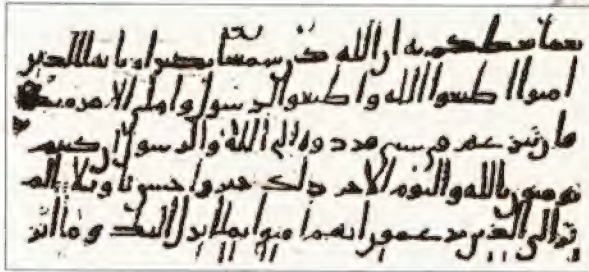 نعما يعظكم به ان الله كن سميعا بصيرا يايها الذين
امنوا اطيعوا الله واطيعوا الرسول واولي الامر منكم
فان تنزعتم في شي فردوه الى الله والرسول ان كنتم
تومنون بالله واليوم الاخر ذلك خير واحسن تاويلا الم
تر الى الذين يزعمون انهم امنوا بما انزل اليك وما انز